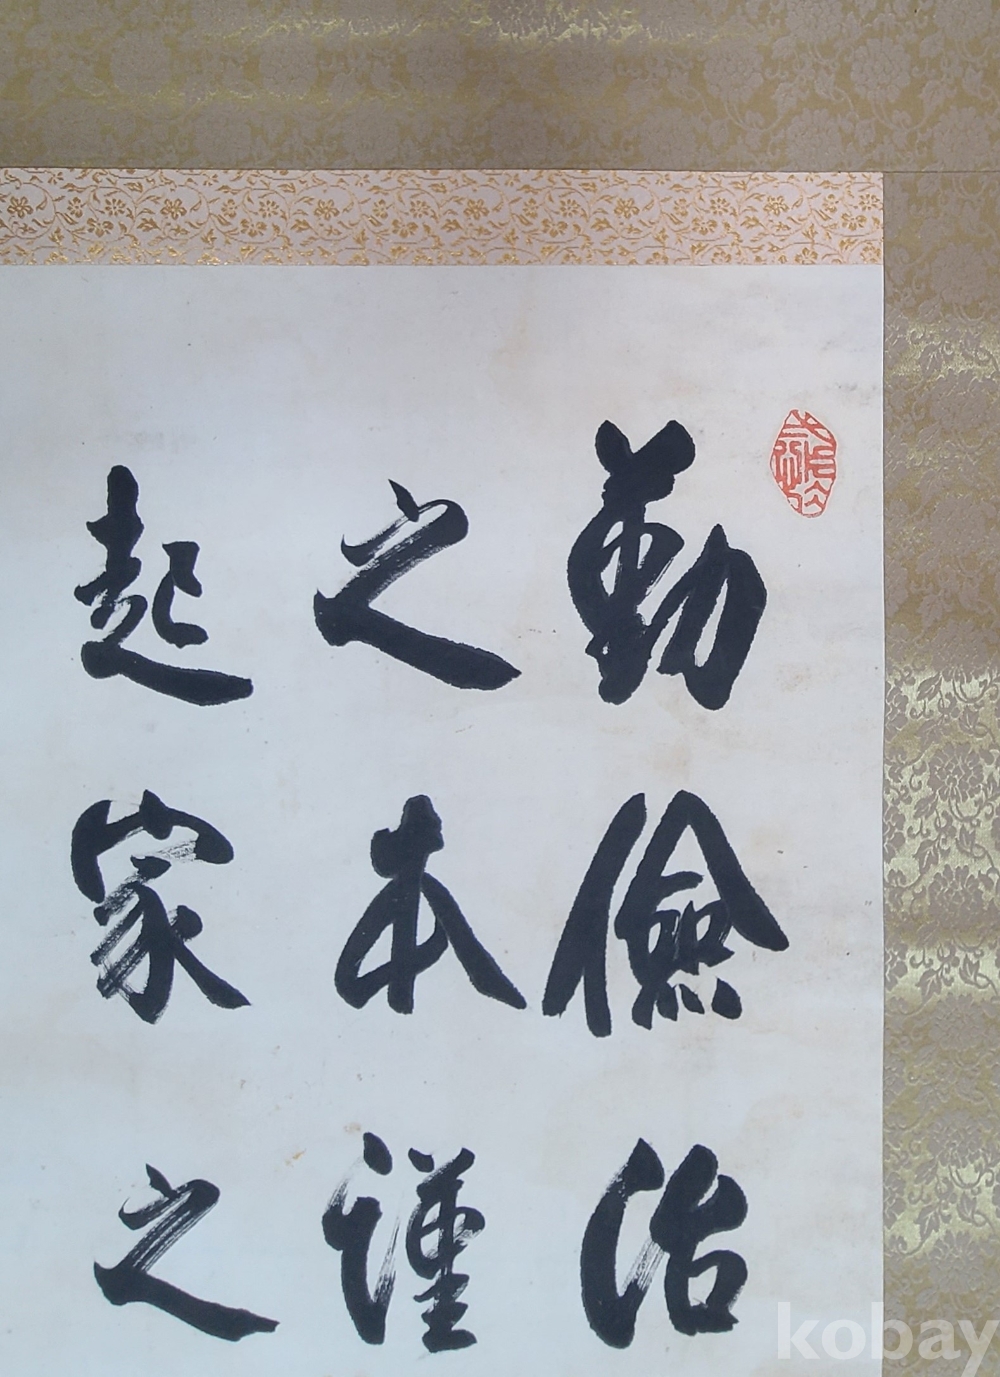 勤儉治
之本謹
起家之
kobay